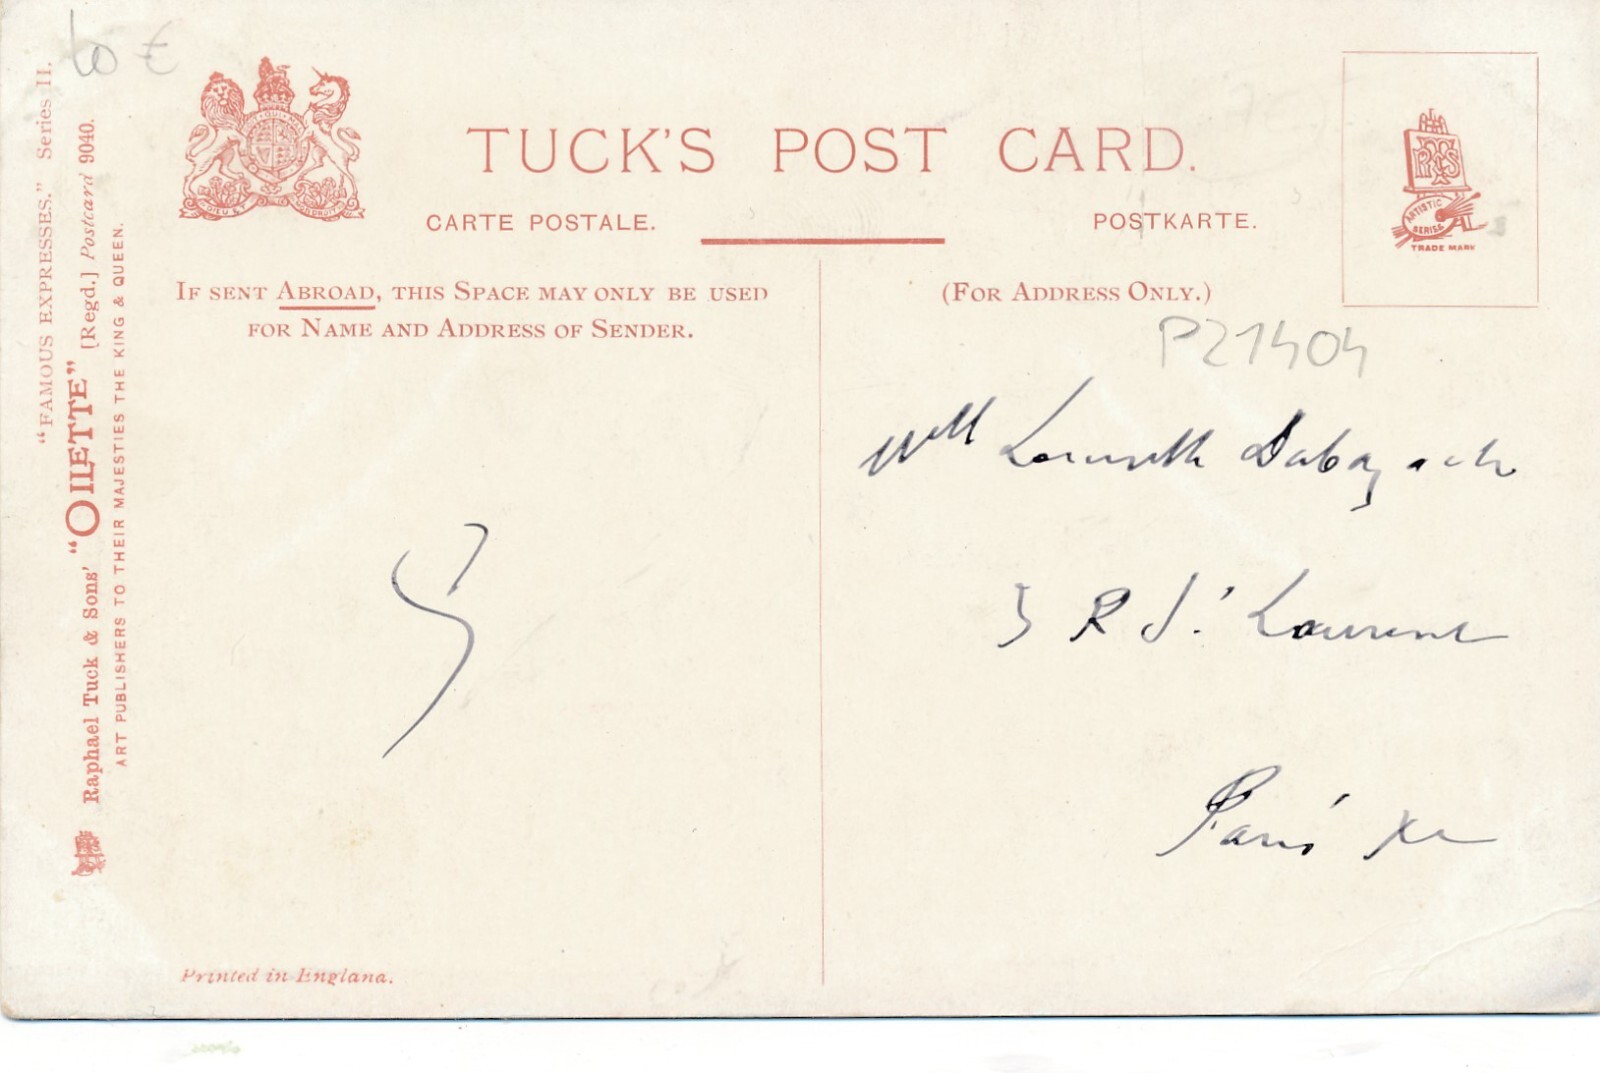 10 €
"FAMOUS EXPRESSES." Series II.
Raphael Tuck & Sons' "OILETTE" [Regd.] Postcard 9040.
ART PUBLISHERS TO THEIR MAJESTIES THE KING & QUEEN.
TUCK'S POST CARD.
CARTE POSTALE.
POSTKARTE.
RTS
ARTISTIC
SERIES
TRADE MARK
IF SENT ABROAD, THIS SPACE MAY ONLY BE USED
FOR NAME AND ADDRESS OF SENDER.
(FOR ADDRESS ONLY.)
P21404
5 R St Laurent
Paris Xe
Printed in England.